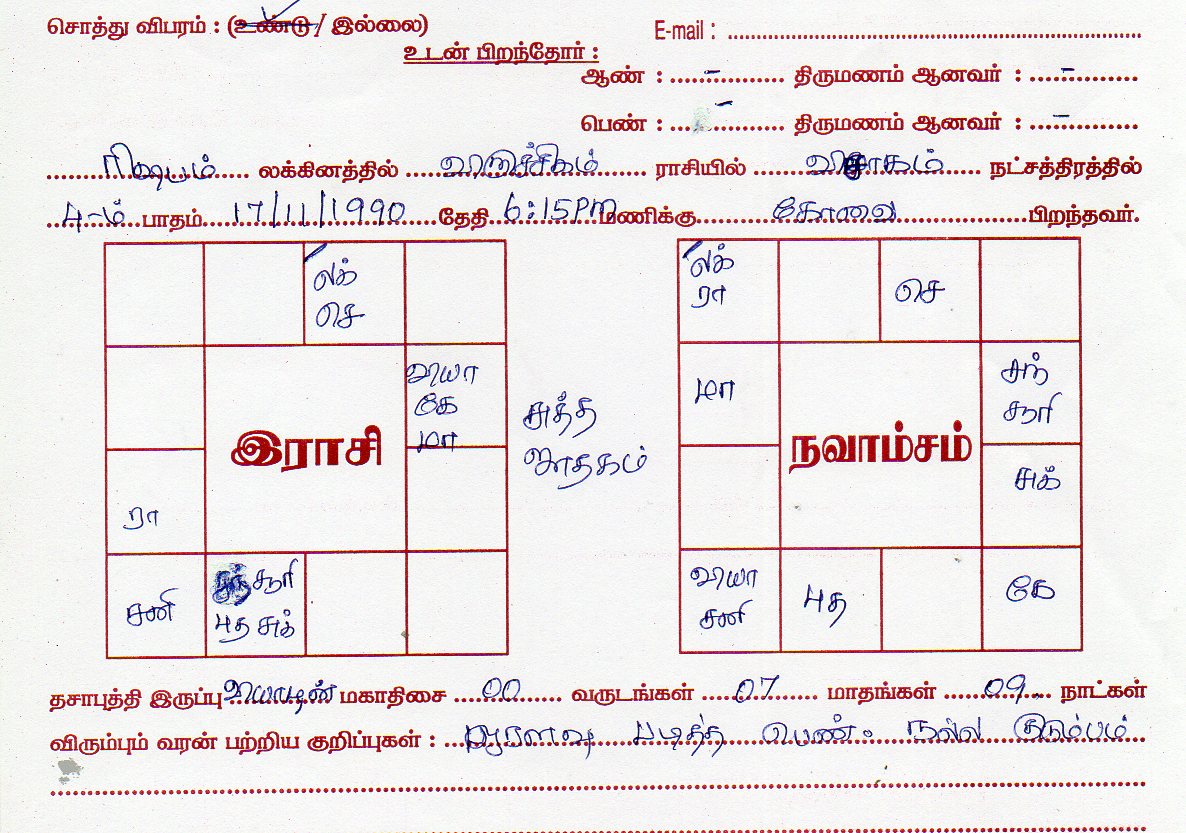 சொத்து விபரம் : (உண்டு / இல்லை)
E-mail : ....................
உடன் பிறந்தோர் :
ஆண் : ....–.... திருமணம் ஆனவர் : ....–....
பெண் : ....–.... திருமணம் ஆனவர் : ....–....
ரிஷபம் லக்கினத்தில் விருச்சிகம் ராசியில் விசாகம் நட்சத்திரத்தில்
4-ம் பாதம் 17/11/1990 தேதி 6:15PM மணிக்கு கோவை பிறந்தவர்.
லக்
செ
வியா
கே
மா
இராசி
ரா
சனி
சந் சூரி
புத சுக்
சுத்த
ஜாதகம்
லக்
ரா
செ
மா
சந்
சூரி
நவாம்சம்
சுக்
வியா
சனி
புத
கே
தசாபுத்தி இருப்பு வியாழன் மகாதிசை 00 வருடங்கள் 07 மாதங்கள் 09 நாட்கள்
விரும்பும் வரன் பற்றிய குறிப்புகள் : படித்த பெண். நல்ல குடும்பம்